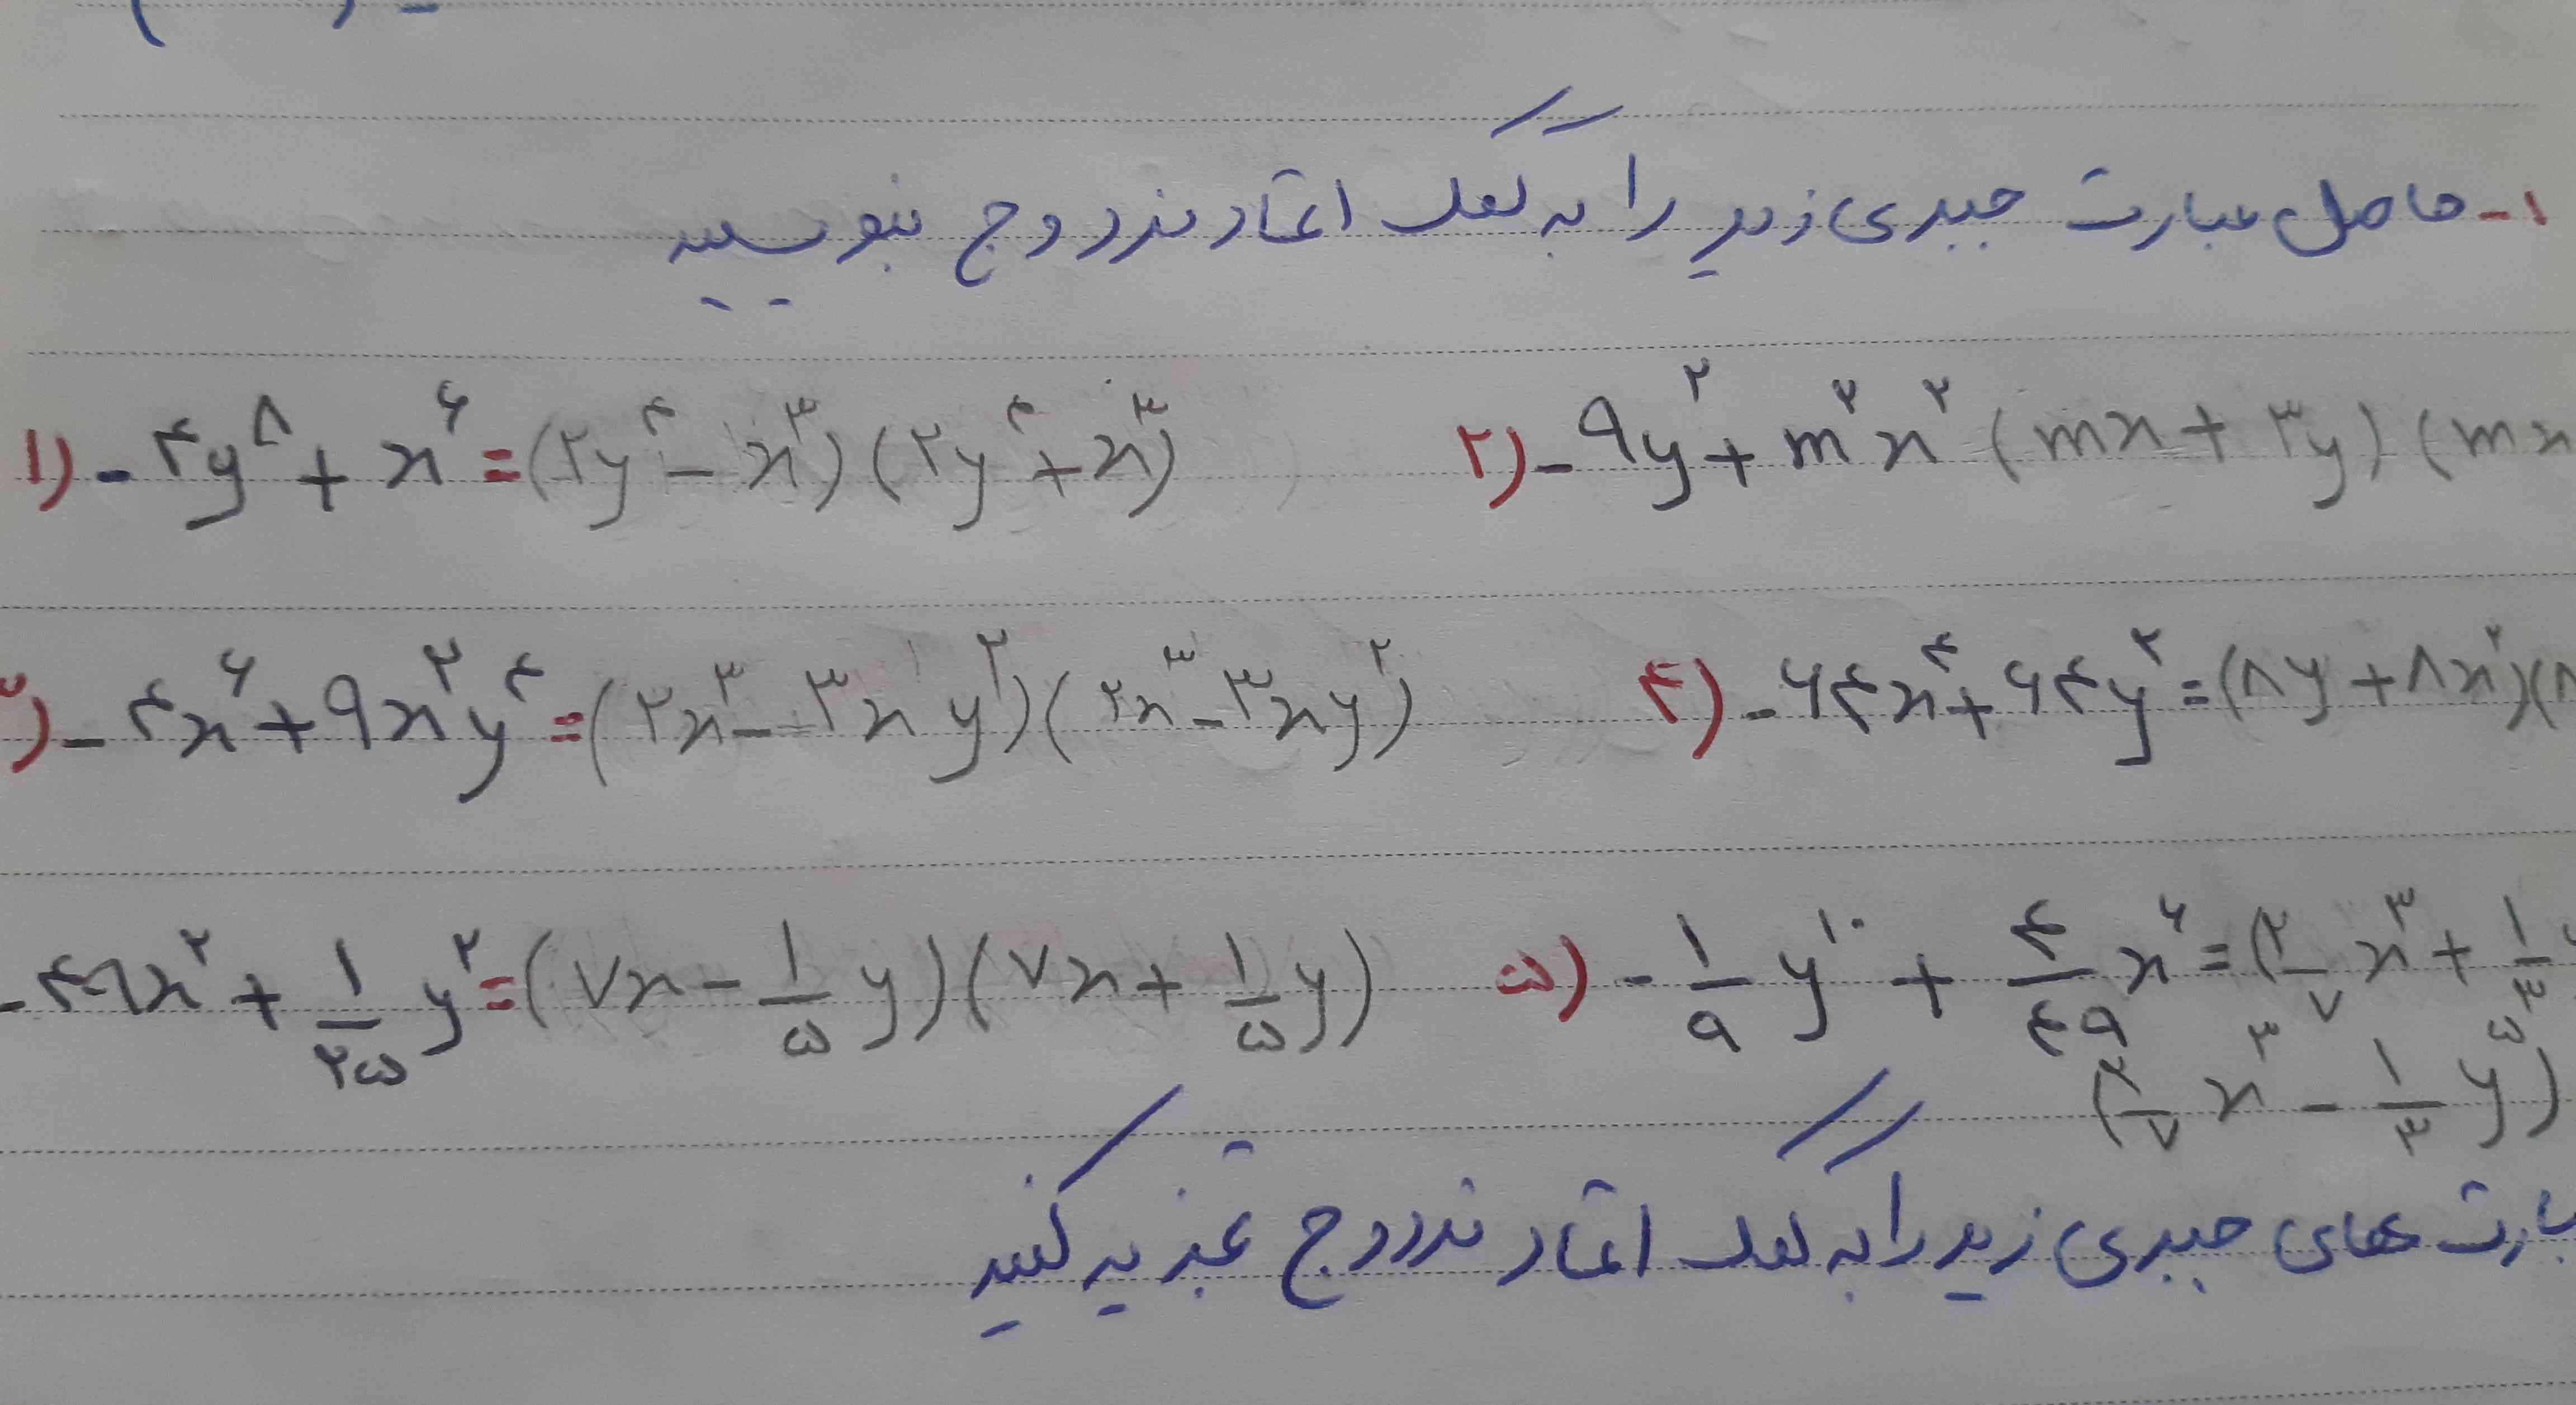 ۱- حاصل عبارت جبری زیر را به کمک اتحاد مزدوج بنویسید
۱) -۴y^۸ + x^۶ = (۲y^۴ - x^۳)(۲y^۴ + x^۳) ۲) -۹y^۲ + m^۲x^۲ (mx + ۳y)(mx
۳) -۴x^۶ + ۹x^۲y^۴ = (۲x^۳ - ۳xy^۲)(۲x^۳ - ۳xy^۲) ۴) -۶۴x^۴ + ۶۴y^۲ = (۸y + ۸x^۲)(۸
-۴۹x^۲ + ۱/۲۵ y^۲ = (۷x - ۱/۵ y)(۷x + ۱/۵ y) ۵) -۱/۹ y^۱۰ + ۴/۴۹ x^۶ = (۲/۷ x^۳ + ۱/۳ y^۵
(۲/۷ x^۳ - ۱/۳ y^۵)
عبارت های جبری زیر را به کمک اتحاد مزدوج تجزیه کنید